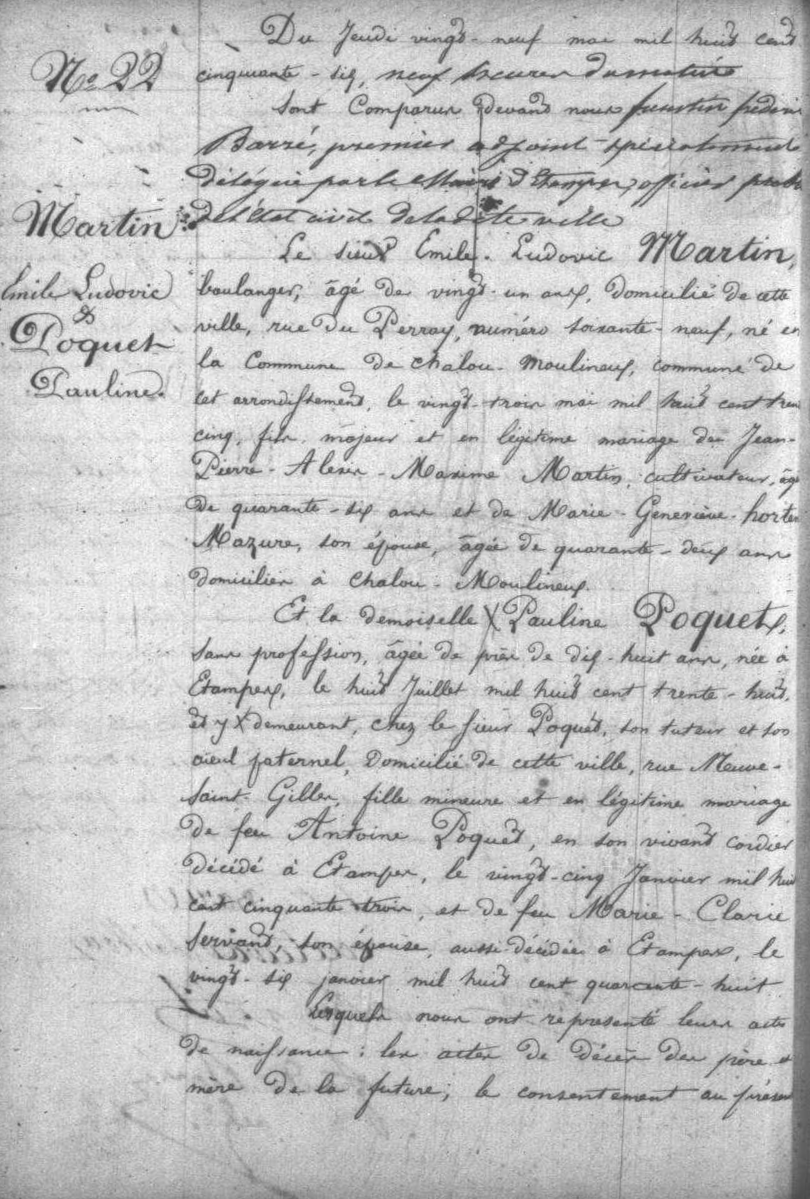 Nº 22
Martin
Emile Ludovic
&
Poquet
Pauline.
Du Jeudi vingt-neuf mai mil huit cent
cinquante-six, neuf heures du matin
sont Comparus devant nous faustin frédéric
Barré, premier adjoint spécialement
délégué par le Maire d'Etampes, officier public
de l'état civil de la dite ville
Le sieur Emile-Ludovic Martin,
boulanger, âgé de vingt-un ans, domicilié de cette
ville, rue du Perray, numéro soixante-neuf, né en
la Commune de Chalou-Moulineux, commune de
cet arrondissement, le vingt-trois mai mil huit cent trente
cinq, fils majeur et en légitime mariage de Jean-
Pierre-Alexis-Maxime Martin, cultivateur, âgé
de quarante-six ans et de Marie-Geneviève-horten
Mazure, son épouse, âgée de quarante-deux ans
domiciliés à Chalou-Moulineux.
Et la demoiselle X Pauline Poquet,
sans profession, âgée de près de dix-huit ans, née à
Etampes, le huit Juillet mil huit cent trente-huit,
et y X demeurant, chez le sieur Poquet, son tuteur et son
aïeul paternel, domicilié de cette ville, rue Neuve-
Saint-Gilles, fille mineure et en légitime mariage
de feu Antoine Poquet, en son vivant cordier
décédé à Etampes, le vingt-cinq Janvier mil huit
cent cinquante trois, et de feu Marie-Clarie
Servant, son épouse, aussi décédée à Etampes, le
vingt-six janvier mil huit cent quarante-huit
Lesquels nous ont représenté leurs actes
de naissance; les actes de décès des père et
mère de la future; le consentement au présent